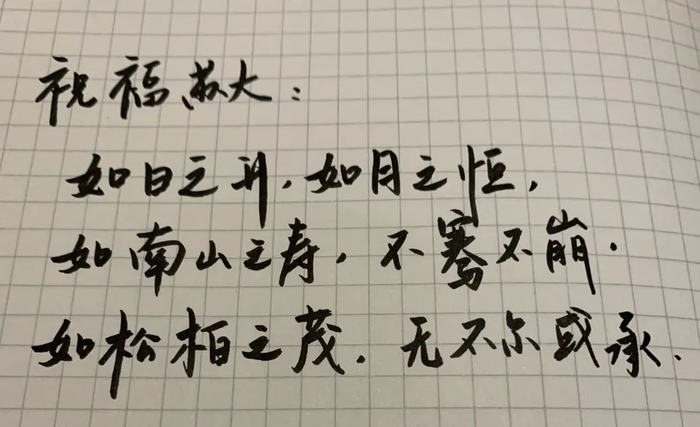 祝福苏大：
如日之升，如月之恒，
如南山之寿，不骞不崩．
如松柏之茂．无不尔或承．